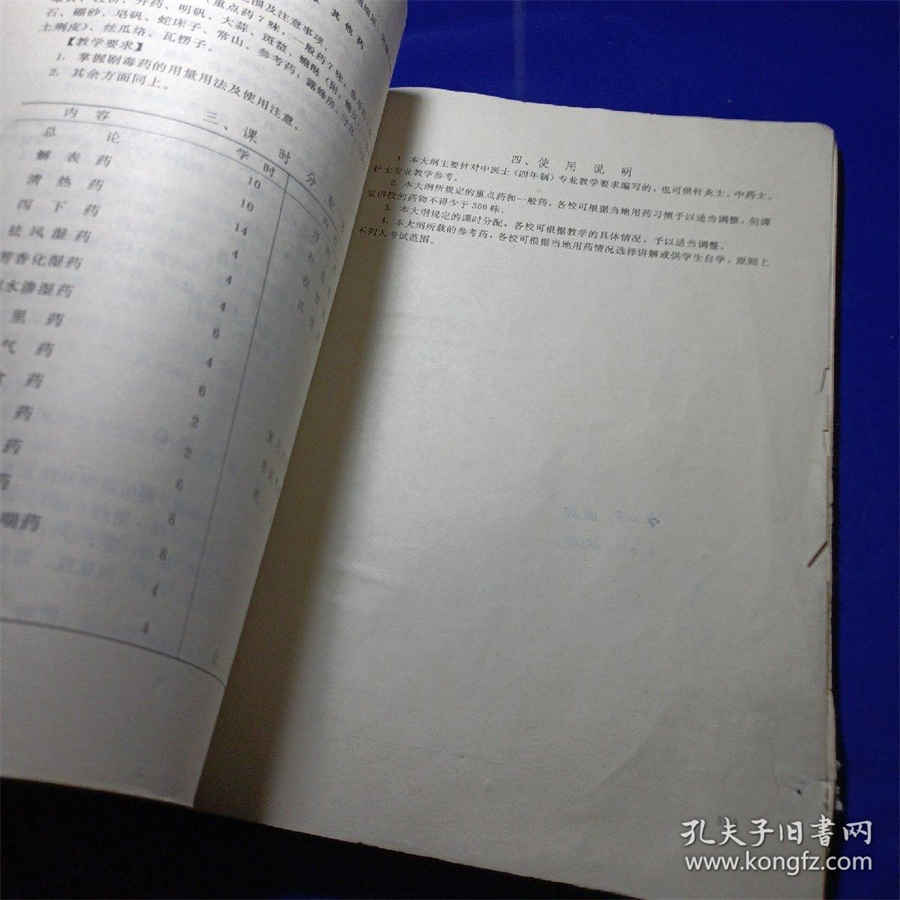 石、硼砂、皂矾、蛇床子、常山、参考药：露蜂房、
土荆皮）、丝瓜络、瓦楞子。
【教学要求】
1. 掌握剧毒药的用量用法及使用注意。
2. 其余方面同上。
三、课时分
内容 学时
总论 10
解表药 10
清热药 14
泻下药 4
祛风湿药 4
芳香化湿药 4
水渗湿药 6
里药 4
气药 6
食药 2
药 2
药 6
药 8
喘药 8
4
4
四、使用说明
1. 本大纲主要针对中医士（四年制）专业教学要求编写的，也可供针灸士、中药士、
护士专业教学参考。
2. 本大纲所规定的重点药和一般药，各校可根据当地用药习惯予以适当调整，但课
堂讲授的药物不得少于300味。
3. 本大纲规定的课时分配，各校可根据教学的具体情况，予以适当调整。
4. 本大纲所载的参考药，各校可根据当地用药情况选择讲解或供学生自学，原则上
不列入考试范围。
孔夫子旧書网
www.kongfz.com